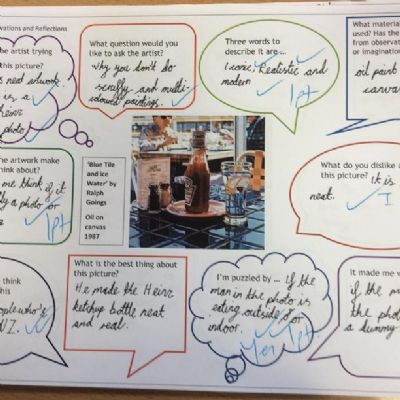 vations and Reflections
the artist trying
this picture?
neat artwork.
is a
Heinz
photo
What question would you
like to ask the artist?
Why you don't do
scruffy and multi-
coloured paintings.
Three words to
describe it are...
Iconic, Realistic and
modern
1pt
What material
used? Has the
from observat
or imagination
oil paint
canva
he artwork make
hink about?
me think if it
ly a photo or
1pt
'Blue Tile
and Ice
Water' by
Ralph
Goings
Oil on
canvas
1987
What do you dislike a
this picture? It is
neat.
1
think
this
ople who's
What is the best thing about
this picture?
He made the Heinz
ketchup bottle neat
and real.
I'm puzzled by ... if the
man in the photo is
eating outside or
indoor.
Yes 1pt
It made me w
if the m
the pho
a dummy